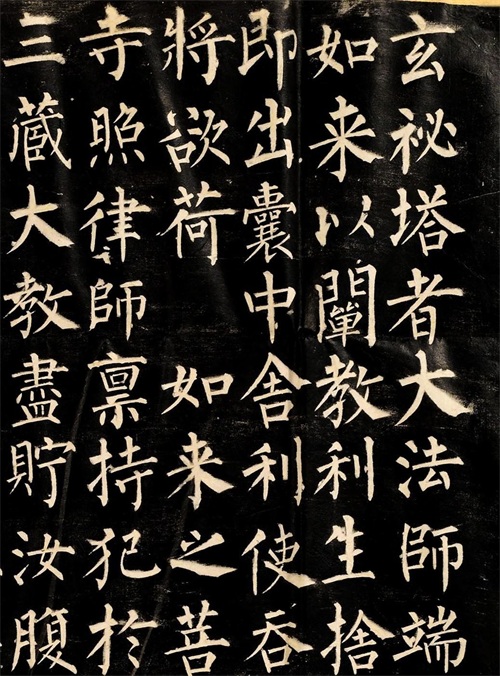 玄祕塔者大法師端
如来以闡教利生捨
即出囊中舍利使吞
將欲荷 如来之菩
寺照律師禀持犯於
三藏大教盡貯汝腹